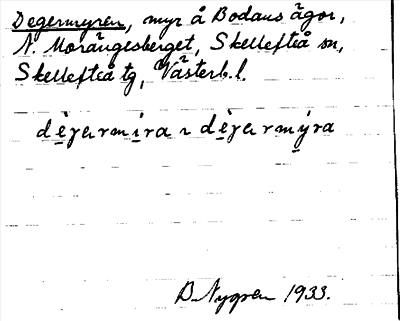 Degermyren, myr å Bodans ägor,
N. Morängesberget, Skellefteå sn,
Skellefteå tg, Västerb. l.
dègermira ~ dègermýra
B. Nygren 1933.